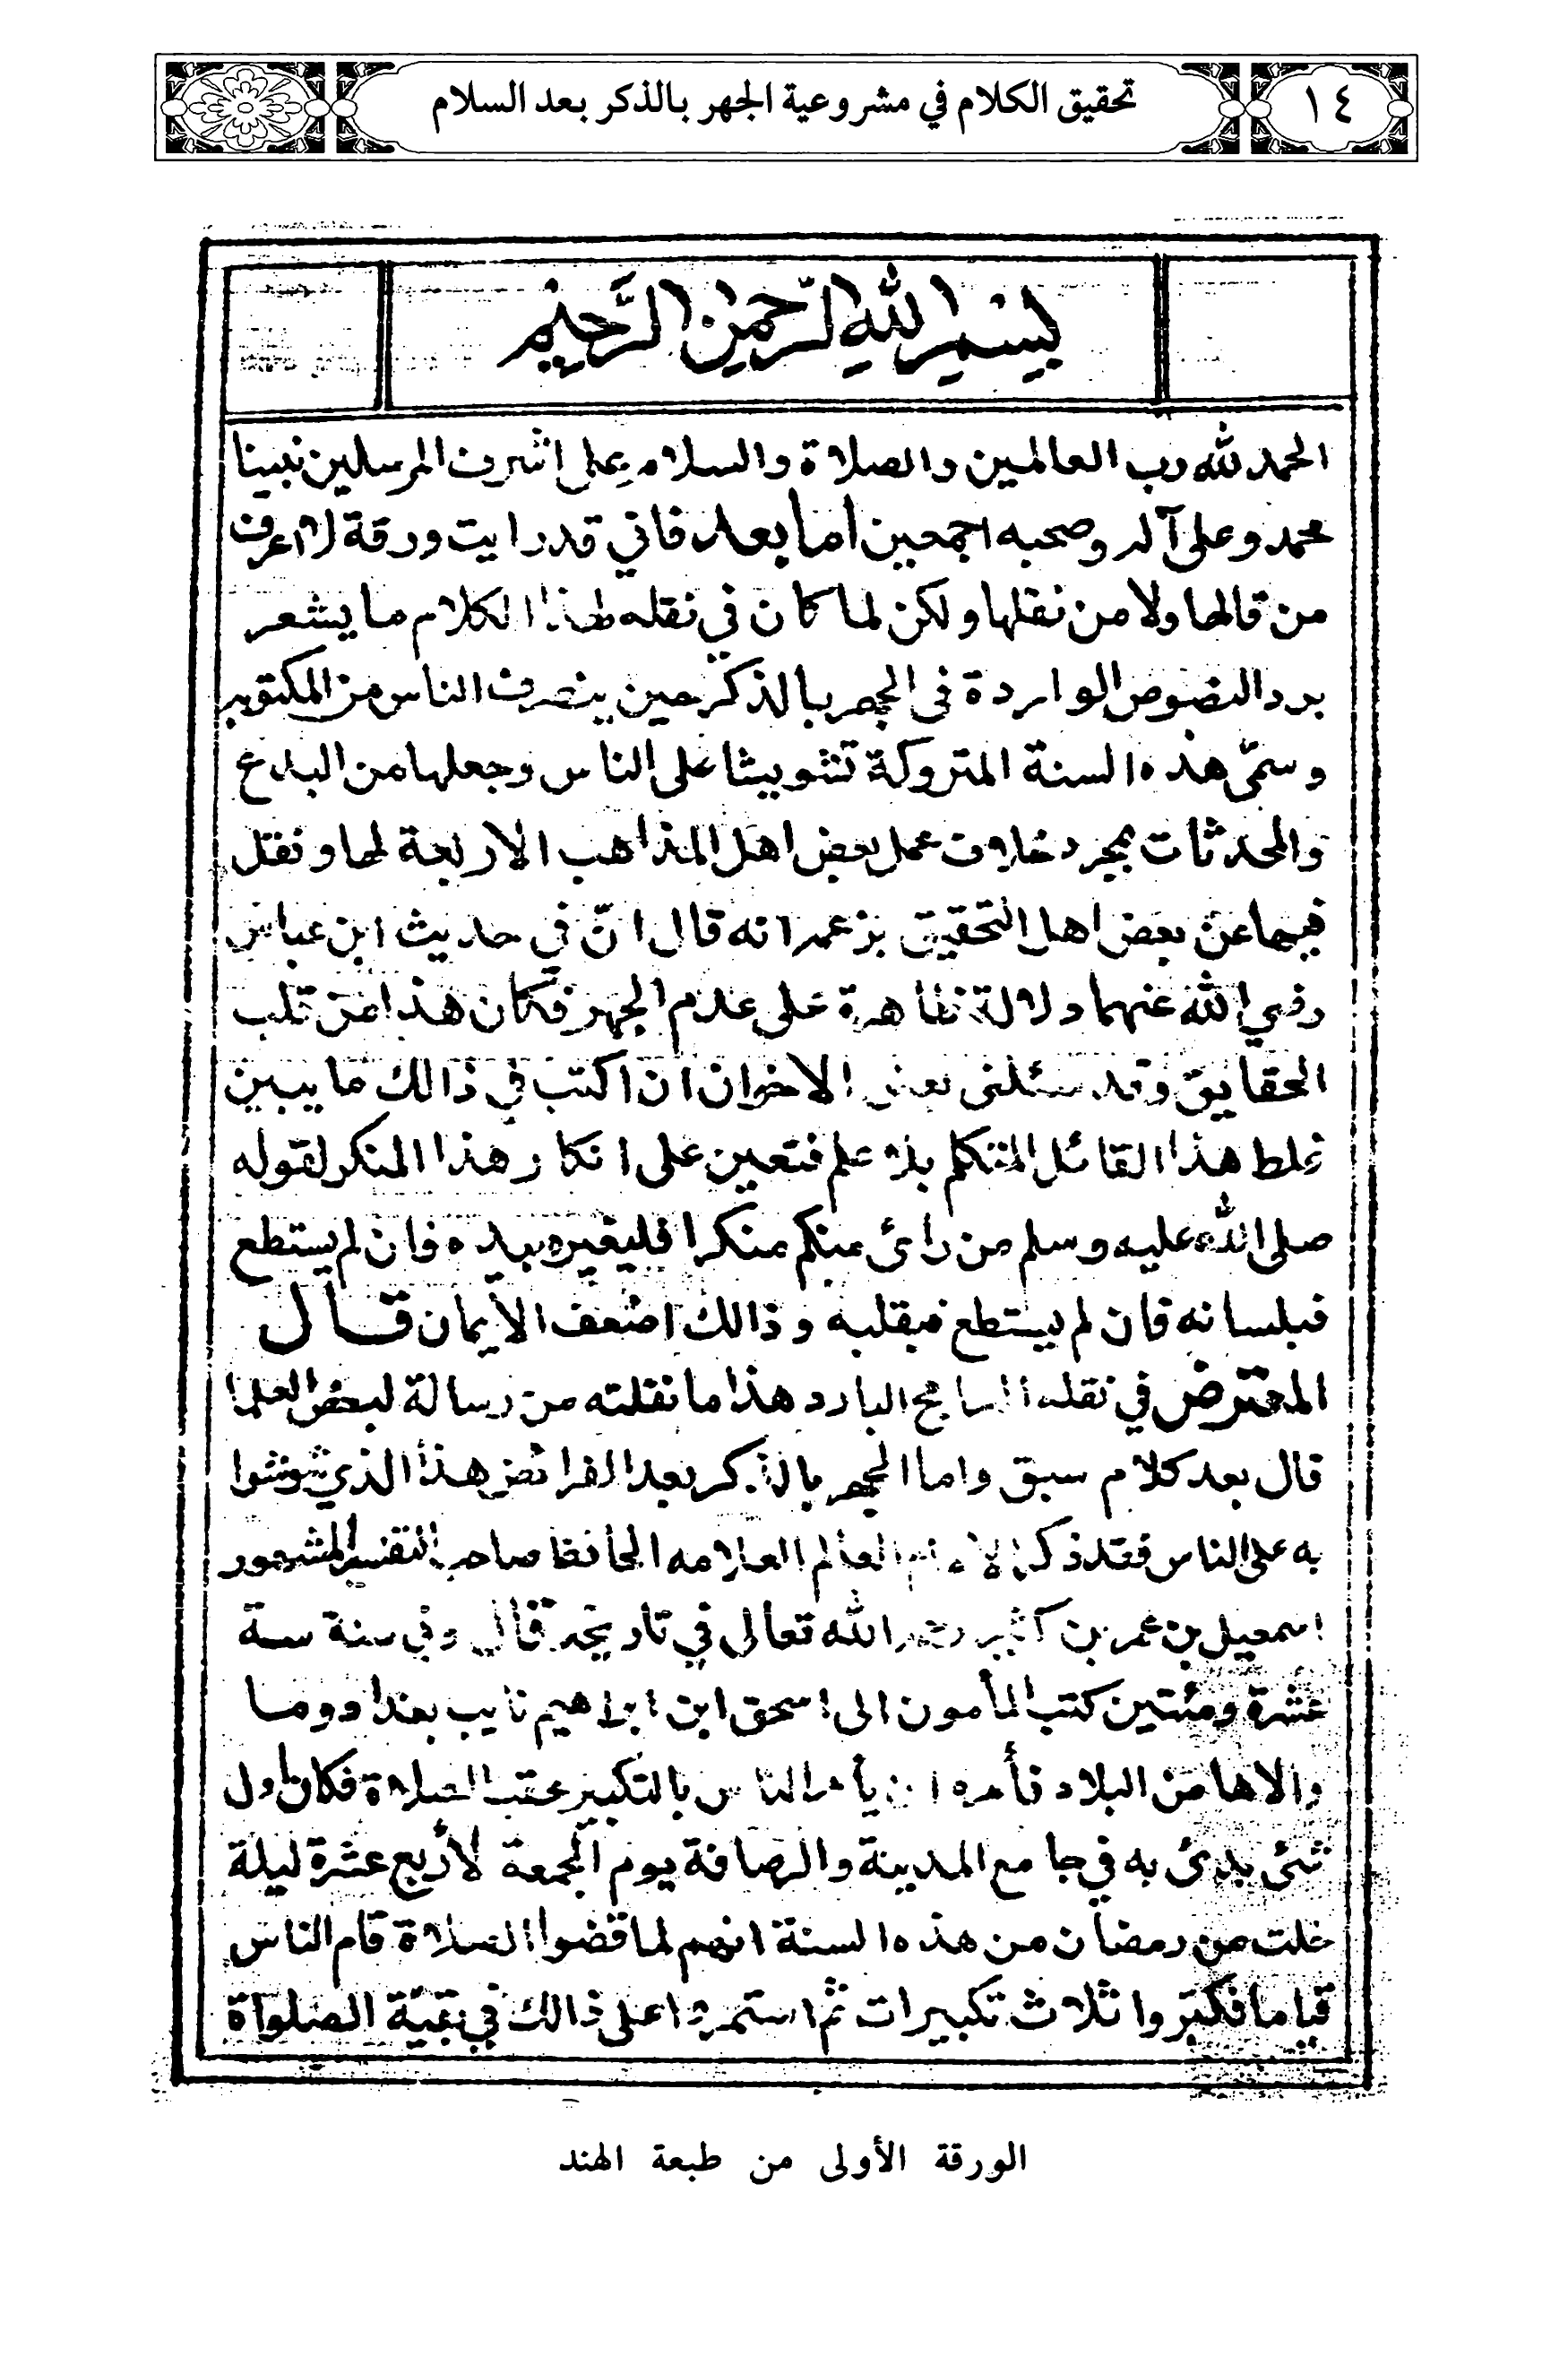 ١٤
تحقيق الكلام في مشروعية الجهر بالذكر بعد السلام
بسم الله الرحمن الرحيم
الحمد لله رب العالمين والصلاة والسلام على اشرف المرسلين نبينا
محمد وعلى آله وصحبه اجمعين اما بعد فاني قد رايت ورقة لا اعرف
من قالها ولا من نقلها ولكن لما كان في نقله لهذا الكلام ما يشعر
برد النصوص الواردة فى الجهر بالذكر حين ينصرف الناس من المكتوبه
وسمّى هذه السنة المتروكة تشويشا على الناس وجعلها من البدع
والمحدثات بمجرد خلاف عمل بعض اهل المذاهب الاربعة لها ونقل
فيها عن بعض اهل التحقيق بزعمه انه قال انّ في حديث ابن عباس
رضي الله عنهما دلالة ظاهرة على عدم الجهر فكان هذا من قلب
الحقايق وقد سئلنى بعض الاخوان ان اكتب في ذالك ما يبين
غلط هذا القائل المتكلم بلا علم فتعين على انكار هذا المنكر لقوله
صلى الله عليه وسلم من رائ منكم منكرا فليغيره بيده فان لم يستطع
فبلسانه فان لم يستطع فبقلبه وذالك اضعف الأيمان قال
المعترض في نقله البارد هذا ما نقلته من رسالة لبعض العلما
قال بعد كلام سبق واما الجهر بالذكر بعد الفرائض هذا الذي شوشوا
به على الناس فقد ذكر الامام العالم العلامه الحافظ صاحب التفسير المشهور
اسمعيل بن عمر بن كثير رحمه الله تعالى في تاريخه قال وفي سنة ستة
عشرة ومئتين كتب المأمون الى اسحق ابن ابراهيم نايب بغداد وما
والاها من البلاد فأمره ان يأمر الناس بالتكبير عقب الصلاة فكان اول
شئ بدئ به في جامع المدينة والرصافة يوم الجمعة لأربع عشرة ليلة
خلت من رمضان من هذه السنة انهم لما قضوا الصلاة قام الناس
قياما فكبّروا ثلاث تكبيرات ثم استمروا على ذالك في بقية الصلواة
الورقة الأولى من طبعة الهند